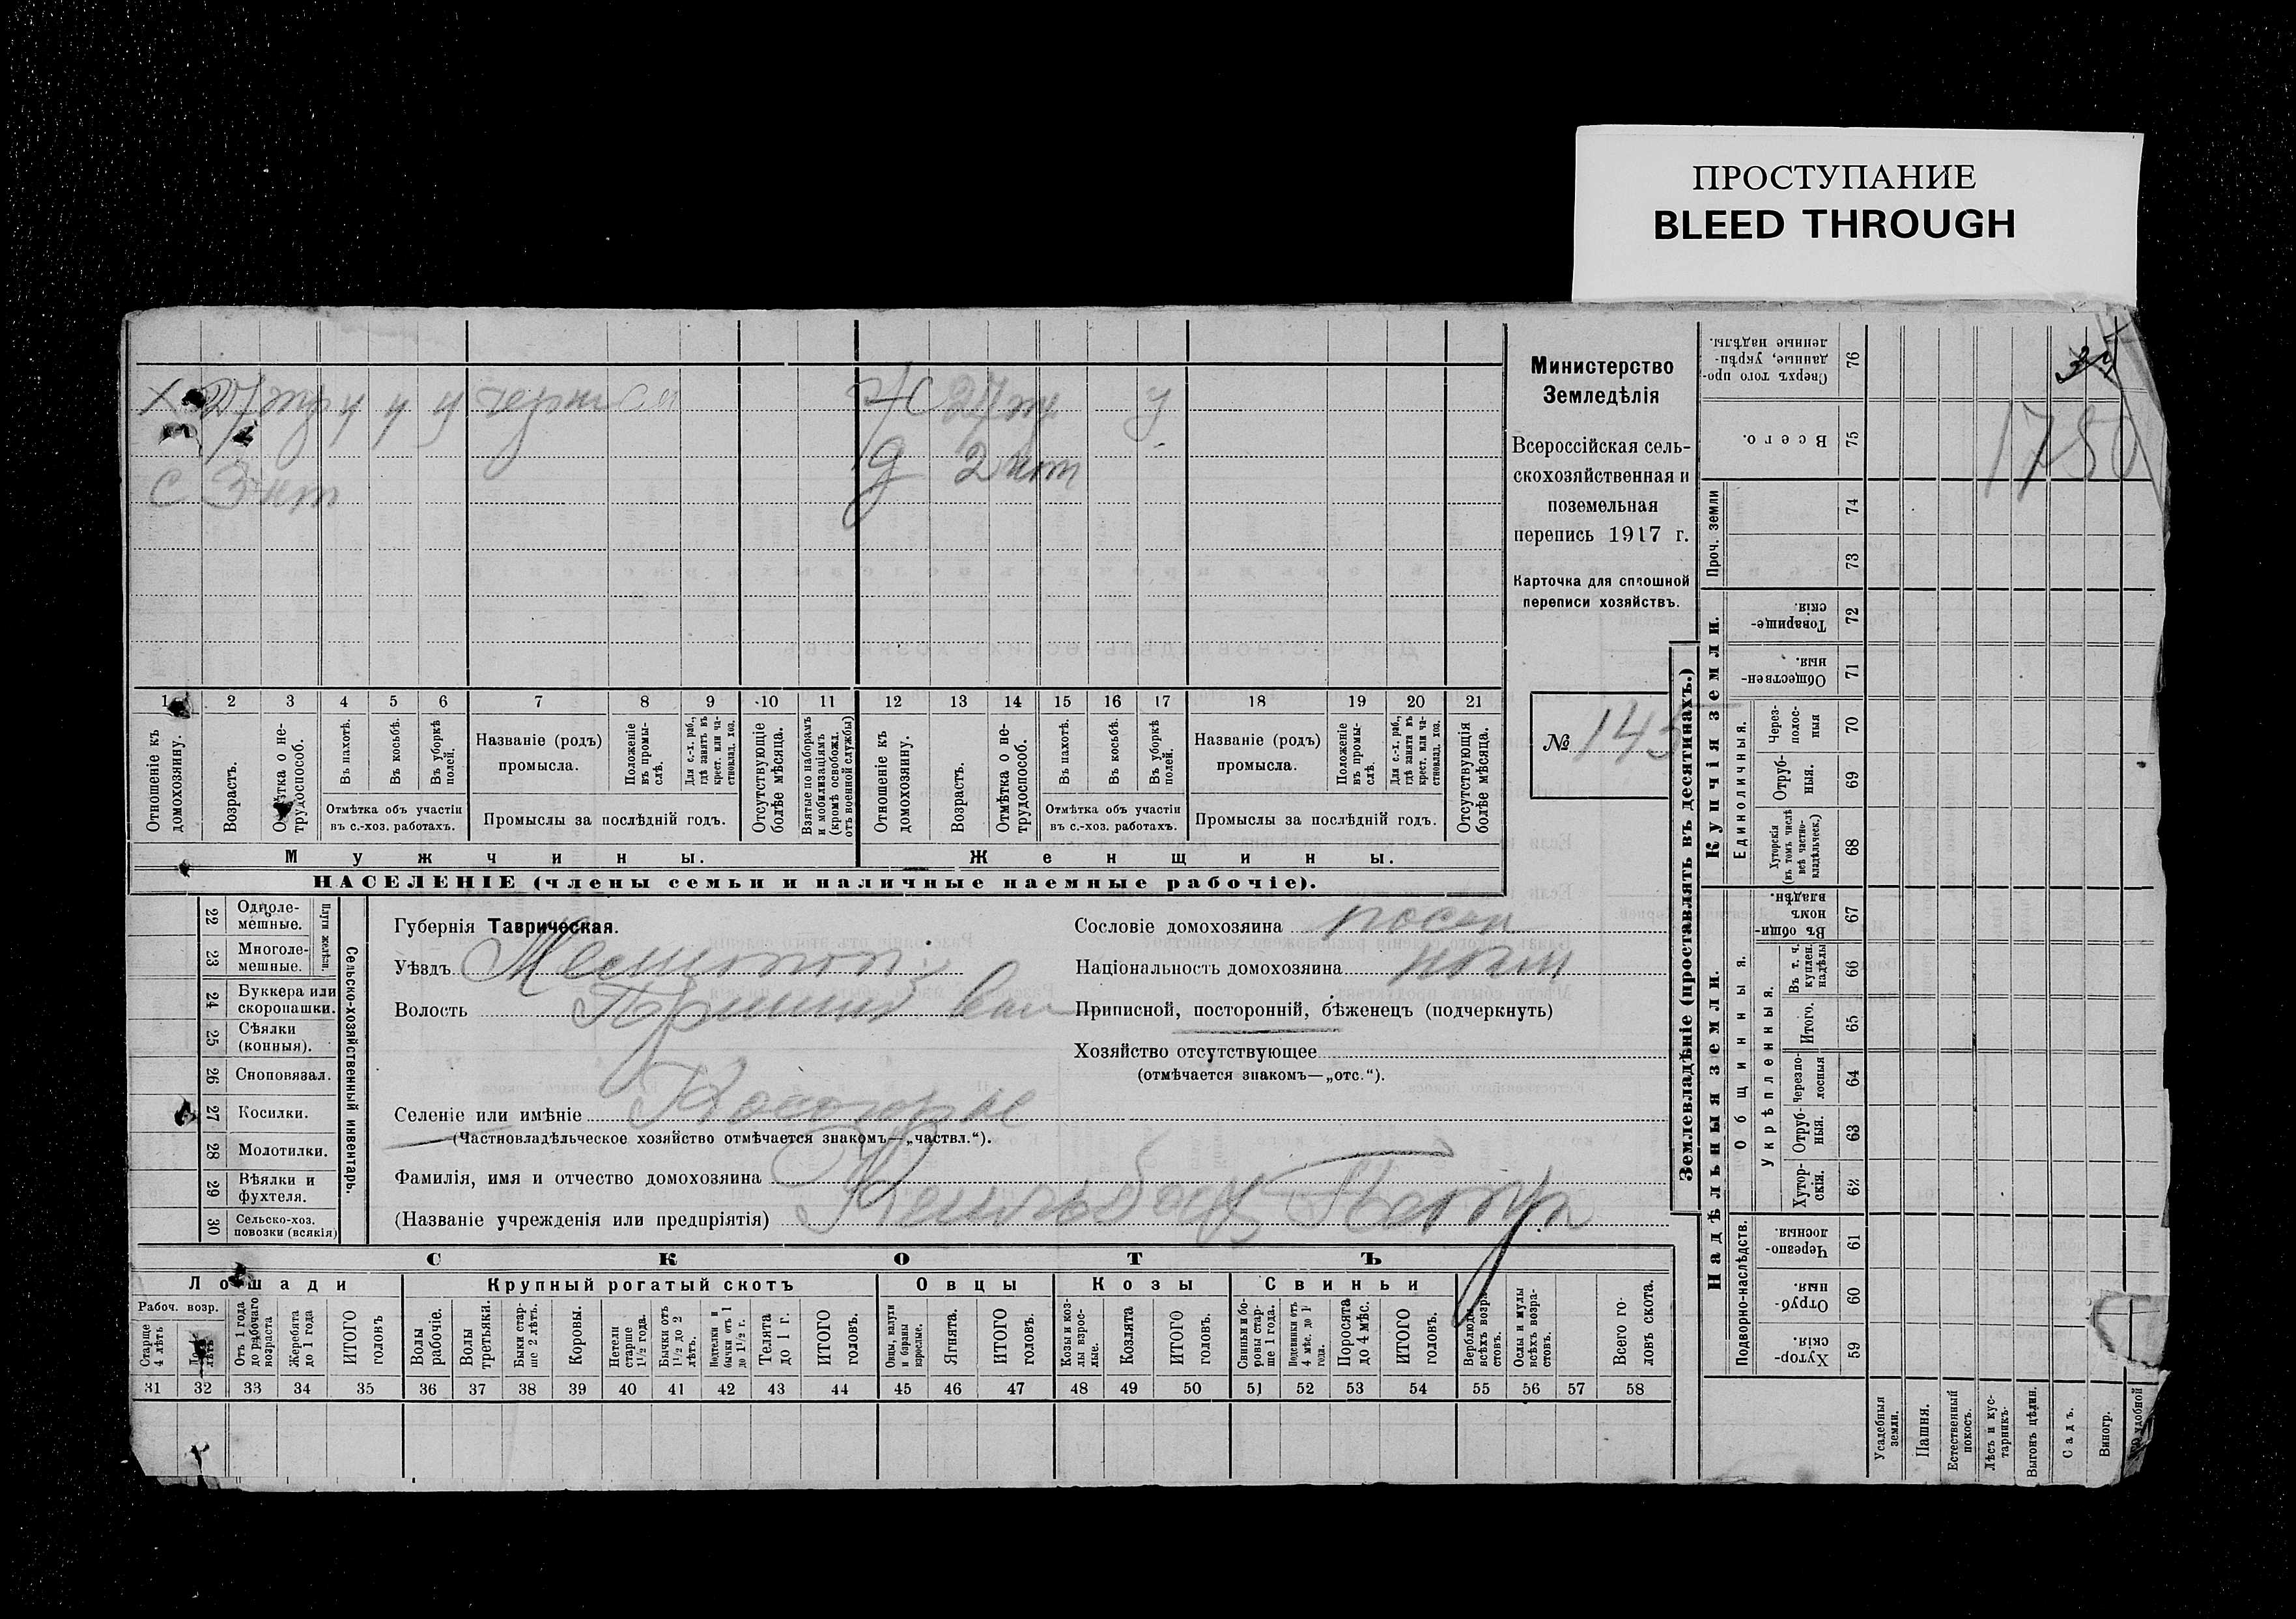 ПРОСТУПАНИЕ
BLEED THROUGH
Министерство
Земледѣлія
Всероссійская сель-
скохозяйственная и
поземельная
перепись 1917 г.
Карточка для сплошной
переписи хозяйствъ.
№ 145
1780
27
С 3 нт
Ж 27
Д 2 нт
1 2 3 4 5 6 7 8 9 10 11 12 13 14 15 16 17 18 19 20 21
Отношеніе къ домохозяину.
Возрастъ.
трудоспособ.
Въ пахотѣ.
Въ косьбѣ.
Въ уборкѣ полей.
Отмѣтка объ участіи
въ с.-хоз. работахъ.
Названіе (родъ)
промысла.
Положеніе въ промы-слѣ.
Для с.-х. раб., гдѣ занятъ въ крест. или ча-стновлад. хоз.
Промыслы за послѣдній годъ.
Отсутствующіе болѣе мѣсяца.
Взятые по наборамъ и мобилизаціямъ (кромѣ освобожд. отъ военной службы)
Отношеніе къ домохозяину.
Возрастъ.
Отмѣтка о не-трудоспособ.
Въ пахотѣ.
Въ косьбѣ.
Въ уборкѣ полей.
Отмѣтка объ участіи
въ с.-хоз. работахъ.
Названіе (родъ)
промысла.
Положеніе въ промы-слѣ.
Для с.-х. раб., гдѣ занята въ крест. или ча-стновлад. хоз.
Промыслы за послѣдній годъ.
Отсутствующія болѣе мѣсяца.
Мужчины.
Женщины.
НАСЕЛЕНІЕ (члены семьи и наличные наемные рабочіе).
22 Одноле-мешные.
23 Многоле-мешные.
Плуги желѣзн.
24 Буккера или скоропашки.
25 Сѣялки (конныя).
26 Сноповязал.
27 Косилки.
28 Молотилки.
29 Вѣялки и фухтеля.
30 Сельско-хоз. повозки (всякія)
Сельско-хозяйственный инвентарь.
Губернія Таврическая.
Уѣздъ
Волость
Селеніе или имѣніе
(Частновладѣльческое хозяйство отмѣчается знакомъ—„частвл.“).
Фамилія, имя и отчество домохозяина
(Названіе учрежденія или предпріятія) Петръ
Сословіе домохозяина посел
Національность домохозяина
Приписной, посторонній, бѣженецъ (подчеркнуть)
Хозяйство отсутствующее
(отмѣчается знакомъ—„отс.“).
СКОТЪ
Лошади
Крупный рогатый скотъ
Овцы
Козы
Свиньи
Рабоч. возр.
Старше 4 лѣтъ
Отъ 1 года до рабочаго возраста
Жеребята до 1 года
ИТОГО головъ
Волы рабочіе.
Волы третьяки.
Быки стар-ше 2 лѣтъ.
Коровы.
Нетели старше 1½ года.
Бычки отъ 1½ до 2 лѣтъ.
Подтелки и бычки отъ 1 до 1½ г.
Телята до 1 г.
ИТОГО головъ.
Овцы, валухи и бараны взрослые.
Ягнята.
ИТОГО головъ.
Козы и коз-лы взрос-лые.
Козлята
ИТОГО головъ.
Свиньи и бо-ровы стар-ше 1 года.
Подсвинки отъ 4 мѣс. до 1 года.
Поросята до 4 мѣс.
ИТОГО головъ.
Верблюды всѣхъ возра-стовъ.
Ослы и мулы всѣхъ возра-стовъ.
Всего го-ловъ скота.
31 32 33 34 35 36 37 38 39 40 41 42 43 44 45 46 47 48 49 50 51 52 53 54 55 56 57 58
Землевладѣніе (проставлять въ десятинахъ.)
Надѣльныя земли.
Купчія земли.
Проч. земли
Сверхъ того про-данные, укрѣп-ленные надѣлы. 76
Всего. 75
74
73
Товарище-скія. 72
Обществен-ныя. 71
Единоличныя.
Через-полос-ныя 70
Отруб-ныя. 69
Хуторскія (въ томъ числѣ всѣ частно-владѣльческ.) 68
Общинныя.
Въ общин-номъ владѣн. 67
Укрѣпленныя.
Въ т. ч. куплен. надѣлы 66
Итого. 65
Черезпо-лосныя 64
Отруб-ныя. 63
Хутор-скія. 62
Подворно-наслѣдств.
Черезпо-лосныя 61
Отруб-ныя. 60
Хутор-скія. 59
Усадебныя земли.
Пашня.
Естественный покосъ.
Лѣсъ и кус-тарникъ.
Выгонъ цѣлин.
Садъ.
Виногр.